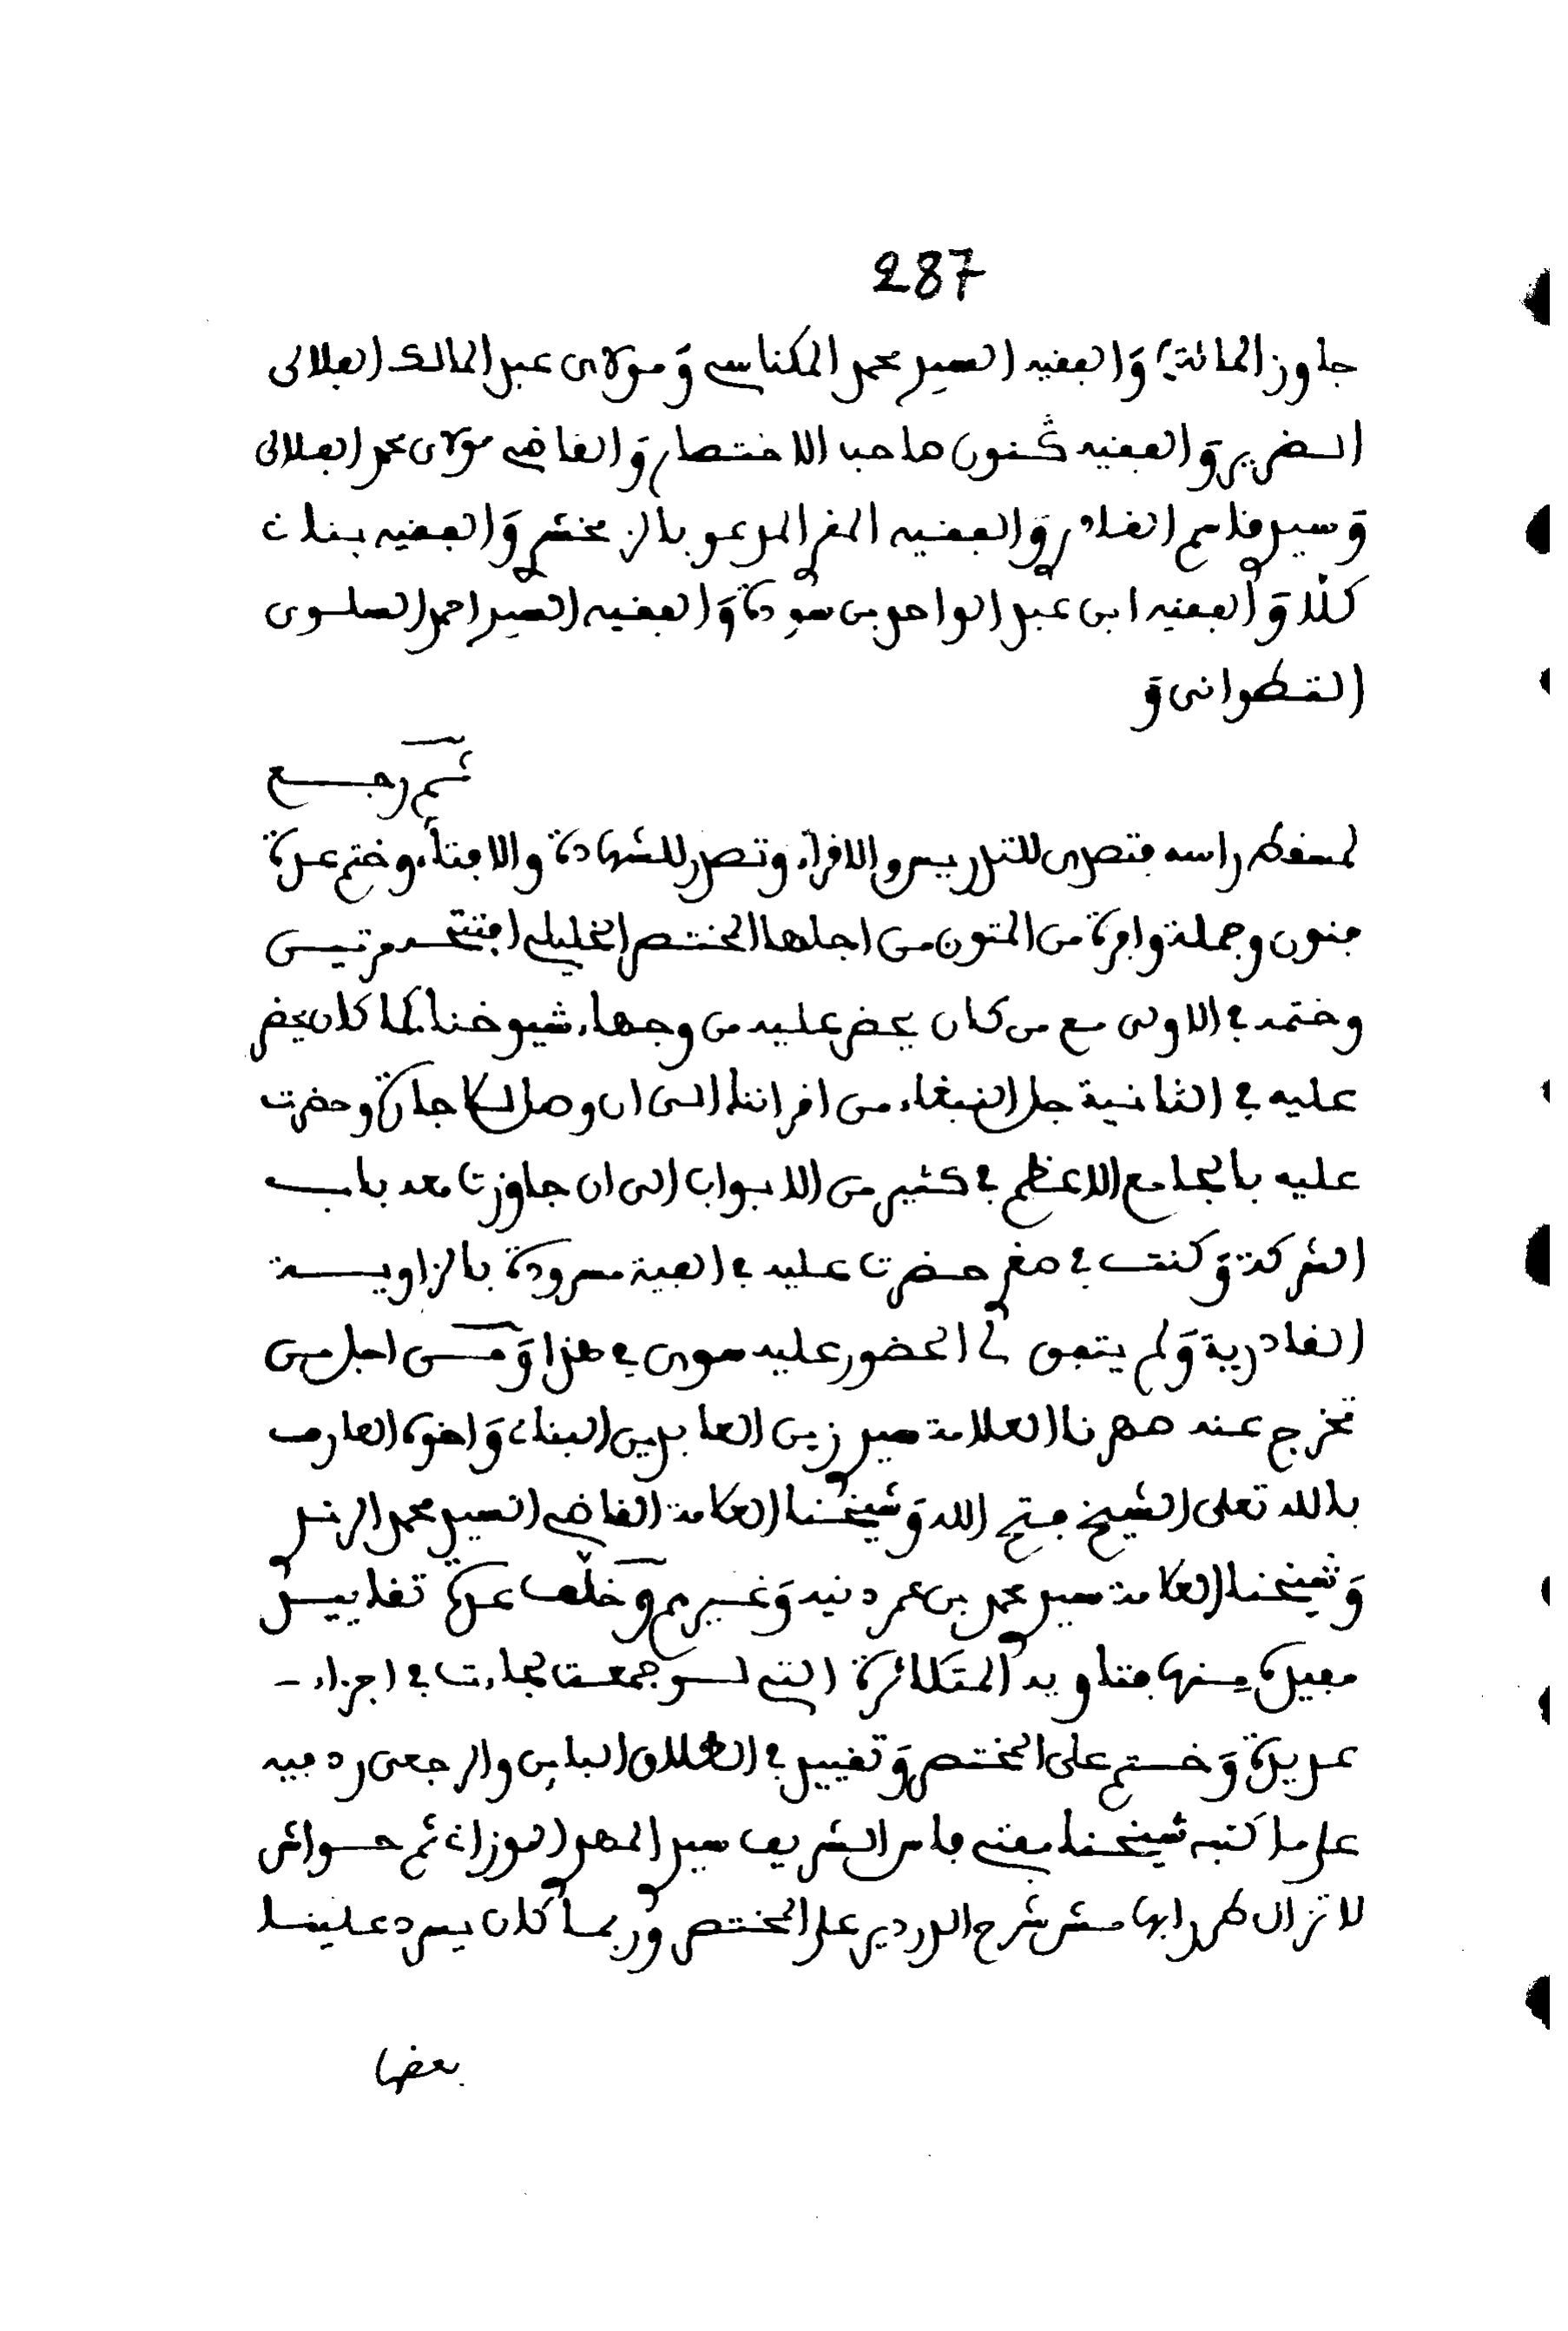 287
جاوز المائة) وَالفقيه السيد محمد المكناسي وَمولاى عبد المالك العلالى
الضرير وَالفقيه ڭنون صاحب الاختصار وَالقاضي مولاى محمد العلالى
وَسيد قاسم القادري وَالفقيه المقر المدعو بالزمخشري وَالفقيه بنات
كلّا وَالفقيه ابى عبد الواحد بن سُودة وَالفقيه السيد احمد السلوى
التطوانى وَ
ثم رجع
لمسقط راسه فتصدى للتدريس والاقراء وتصدر للشهادة والافتاء وختم عدة
فنون وجملة وافرة من المتون من اجلها المختصر الخليلي افتتحه مرتين
وختمه في الاولى مع من كان يحضر عليه من وجهاء شيوخنا كما كان يحضر
عليه في الثانية جل النبغاء من اقراننا الى ان وصل للاجارة وحضرت
عليه بالجامع الاعظم في كثير من الابواب الى ان جاوزت معه باب
الشركة وَكنت في صغري حضرت عليه في الفية مسرودة بالزاوية
القادرية وَلم يتفق لي الحضور عليه سوى في هذا وَمن اجل من
تخرج عنه صهرنا العلامة سيدي زين العابدين البناء وَاخوه العارف
بالله تعلى الشيخ فتح الله وَشيخنا العلامة القاضي السيد محمد الرندي
وَشيخنا العلامة سيدي محمد بن عمر دنيه وَغيرهم وَخلّف عدة تقاييد
مفيدة منها فتاويه المتكاثرة التي لو جمعت لجاءت في اجزاء
عديدة وَختم على المختصر وَتقييد في الطلاق البائن والرجعى رد فيه
على ما كتبه شيخنا مفتي فاس الشريف سيدي المهدي الوزاني ثم حواش
لا تزال طررا بهامش شرح الدردير على المختصر وَربما كان يسرد علينا
بعضها